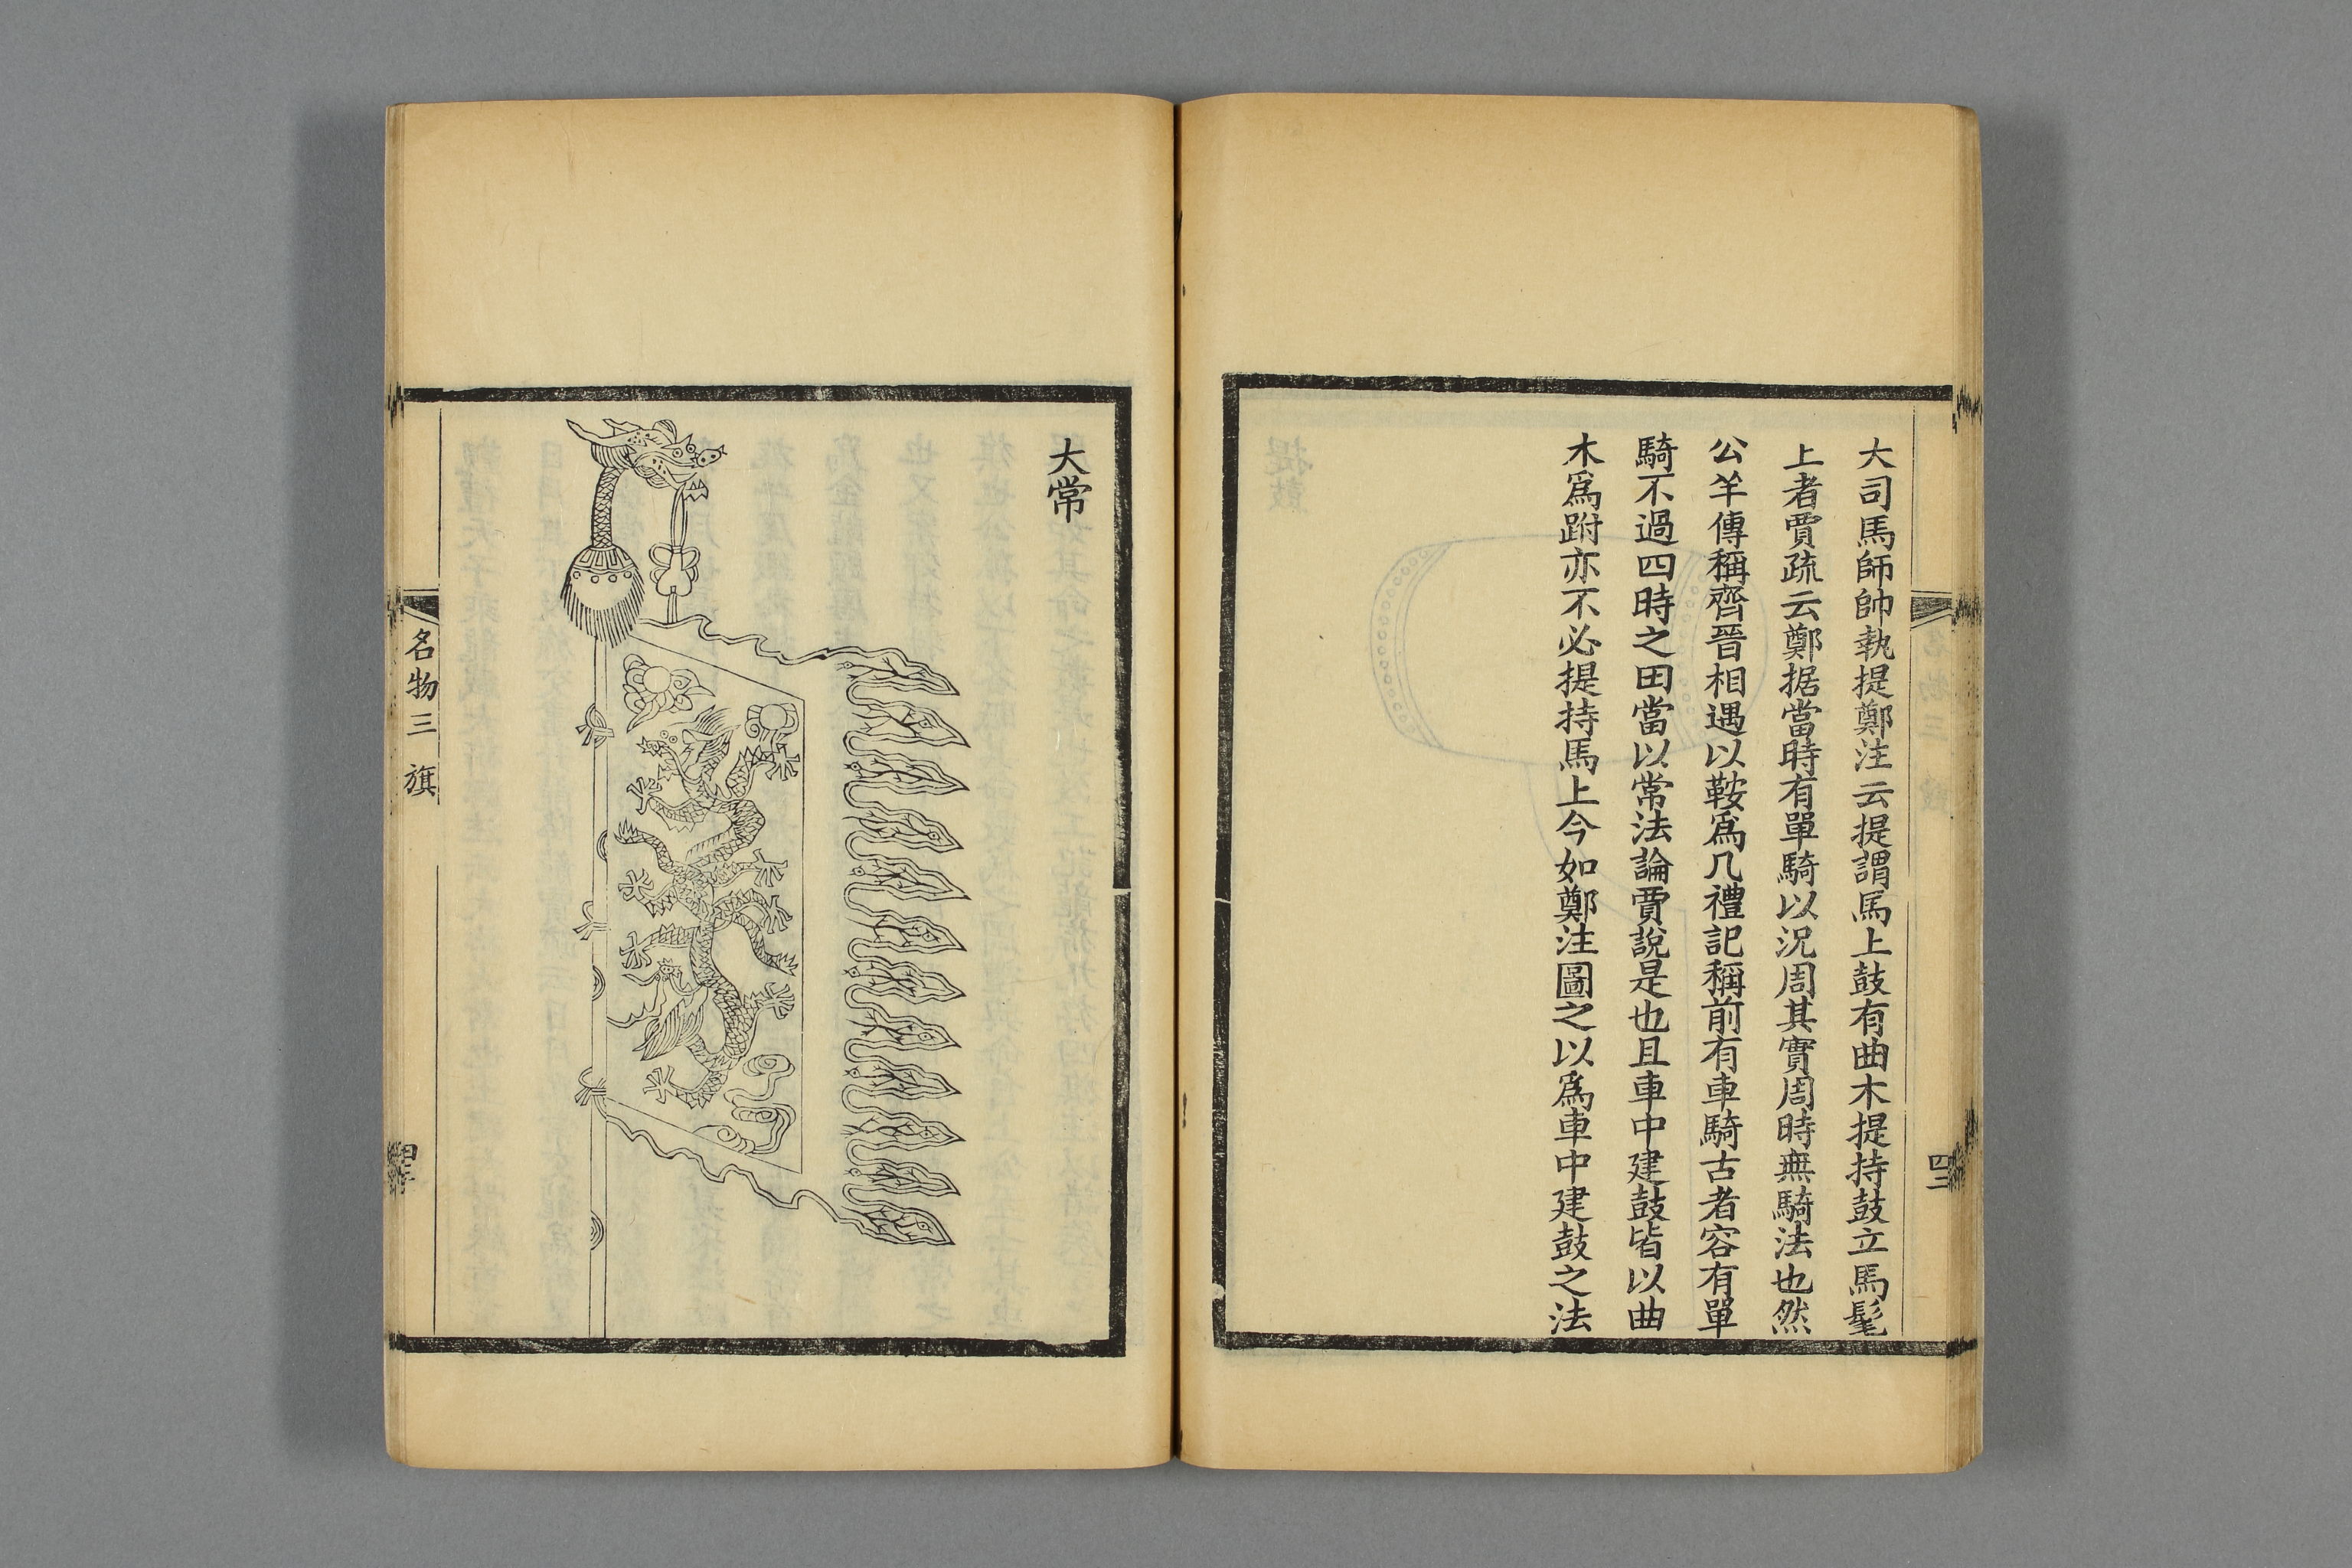 大司馬師帥執提鄭注云提謂馬上鼓有曲木提持鼓立馬髦
上者賈疏云鄭据當時有單騎以況周其實周時無騎法也然
公羊傳稱齊晉相遇以鞍爲几禮記稱前有車騎古者容有單
騎不過四時之田當以常法論賈說是也且車中建鼓皆以曲
木爲跗亦不必提持馬上今如鄭注圖之以爲車中建鼓之法
大常
名物三 旗